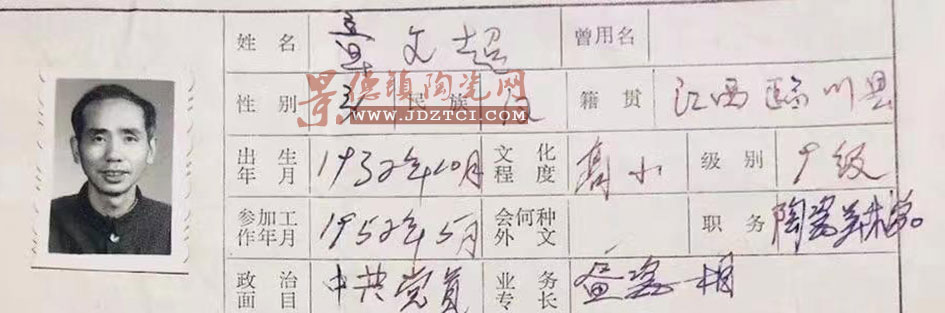 姓名 章文超 曾用名
性别 男 民族 汉 籍贯 江西临川县
景德镇陶瓷网
WWW.JDZTCI.COM
出生年月 1932年10月 文化程度 高小 级别 9级
参加工作年月 1952年5月 会何种外文 职务 陶瓷美术
政治面目 中共党员 业务专长 瓷